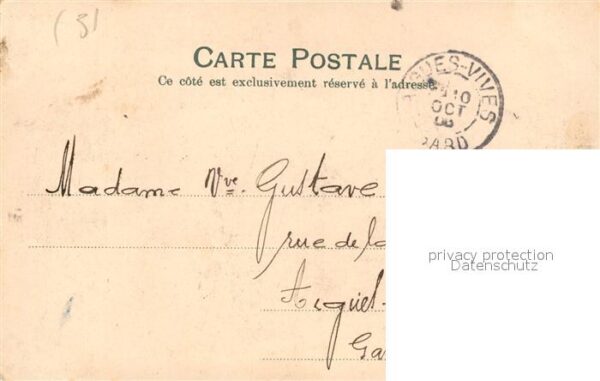 (3)
CARTE POSTALE
Ce côté est exclusivement réservé à l'adresse
GUES-VIVES
10
OCT
GARD
Madame Vve. Gustave
rue de la
privacy protection
Datenschutz
Ga